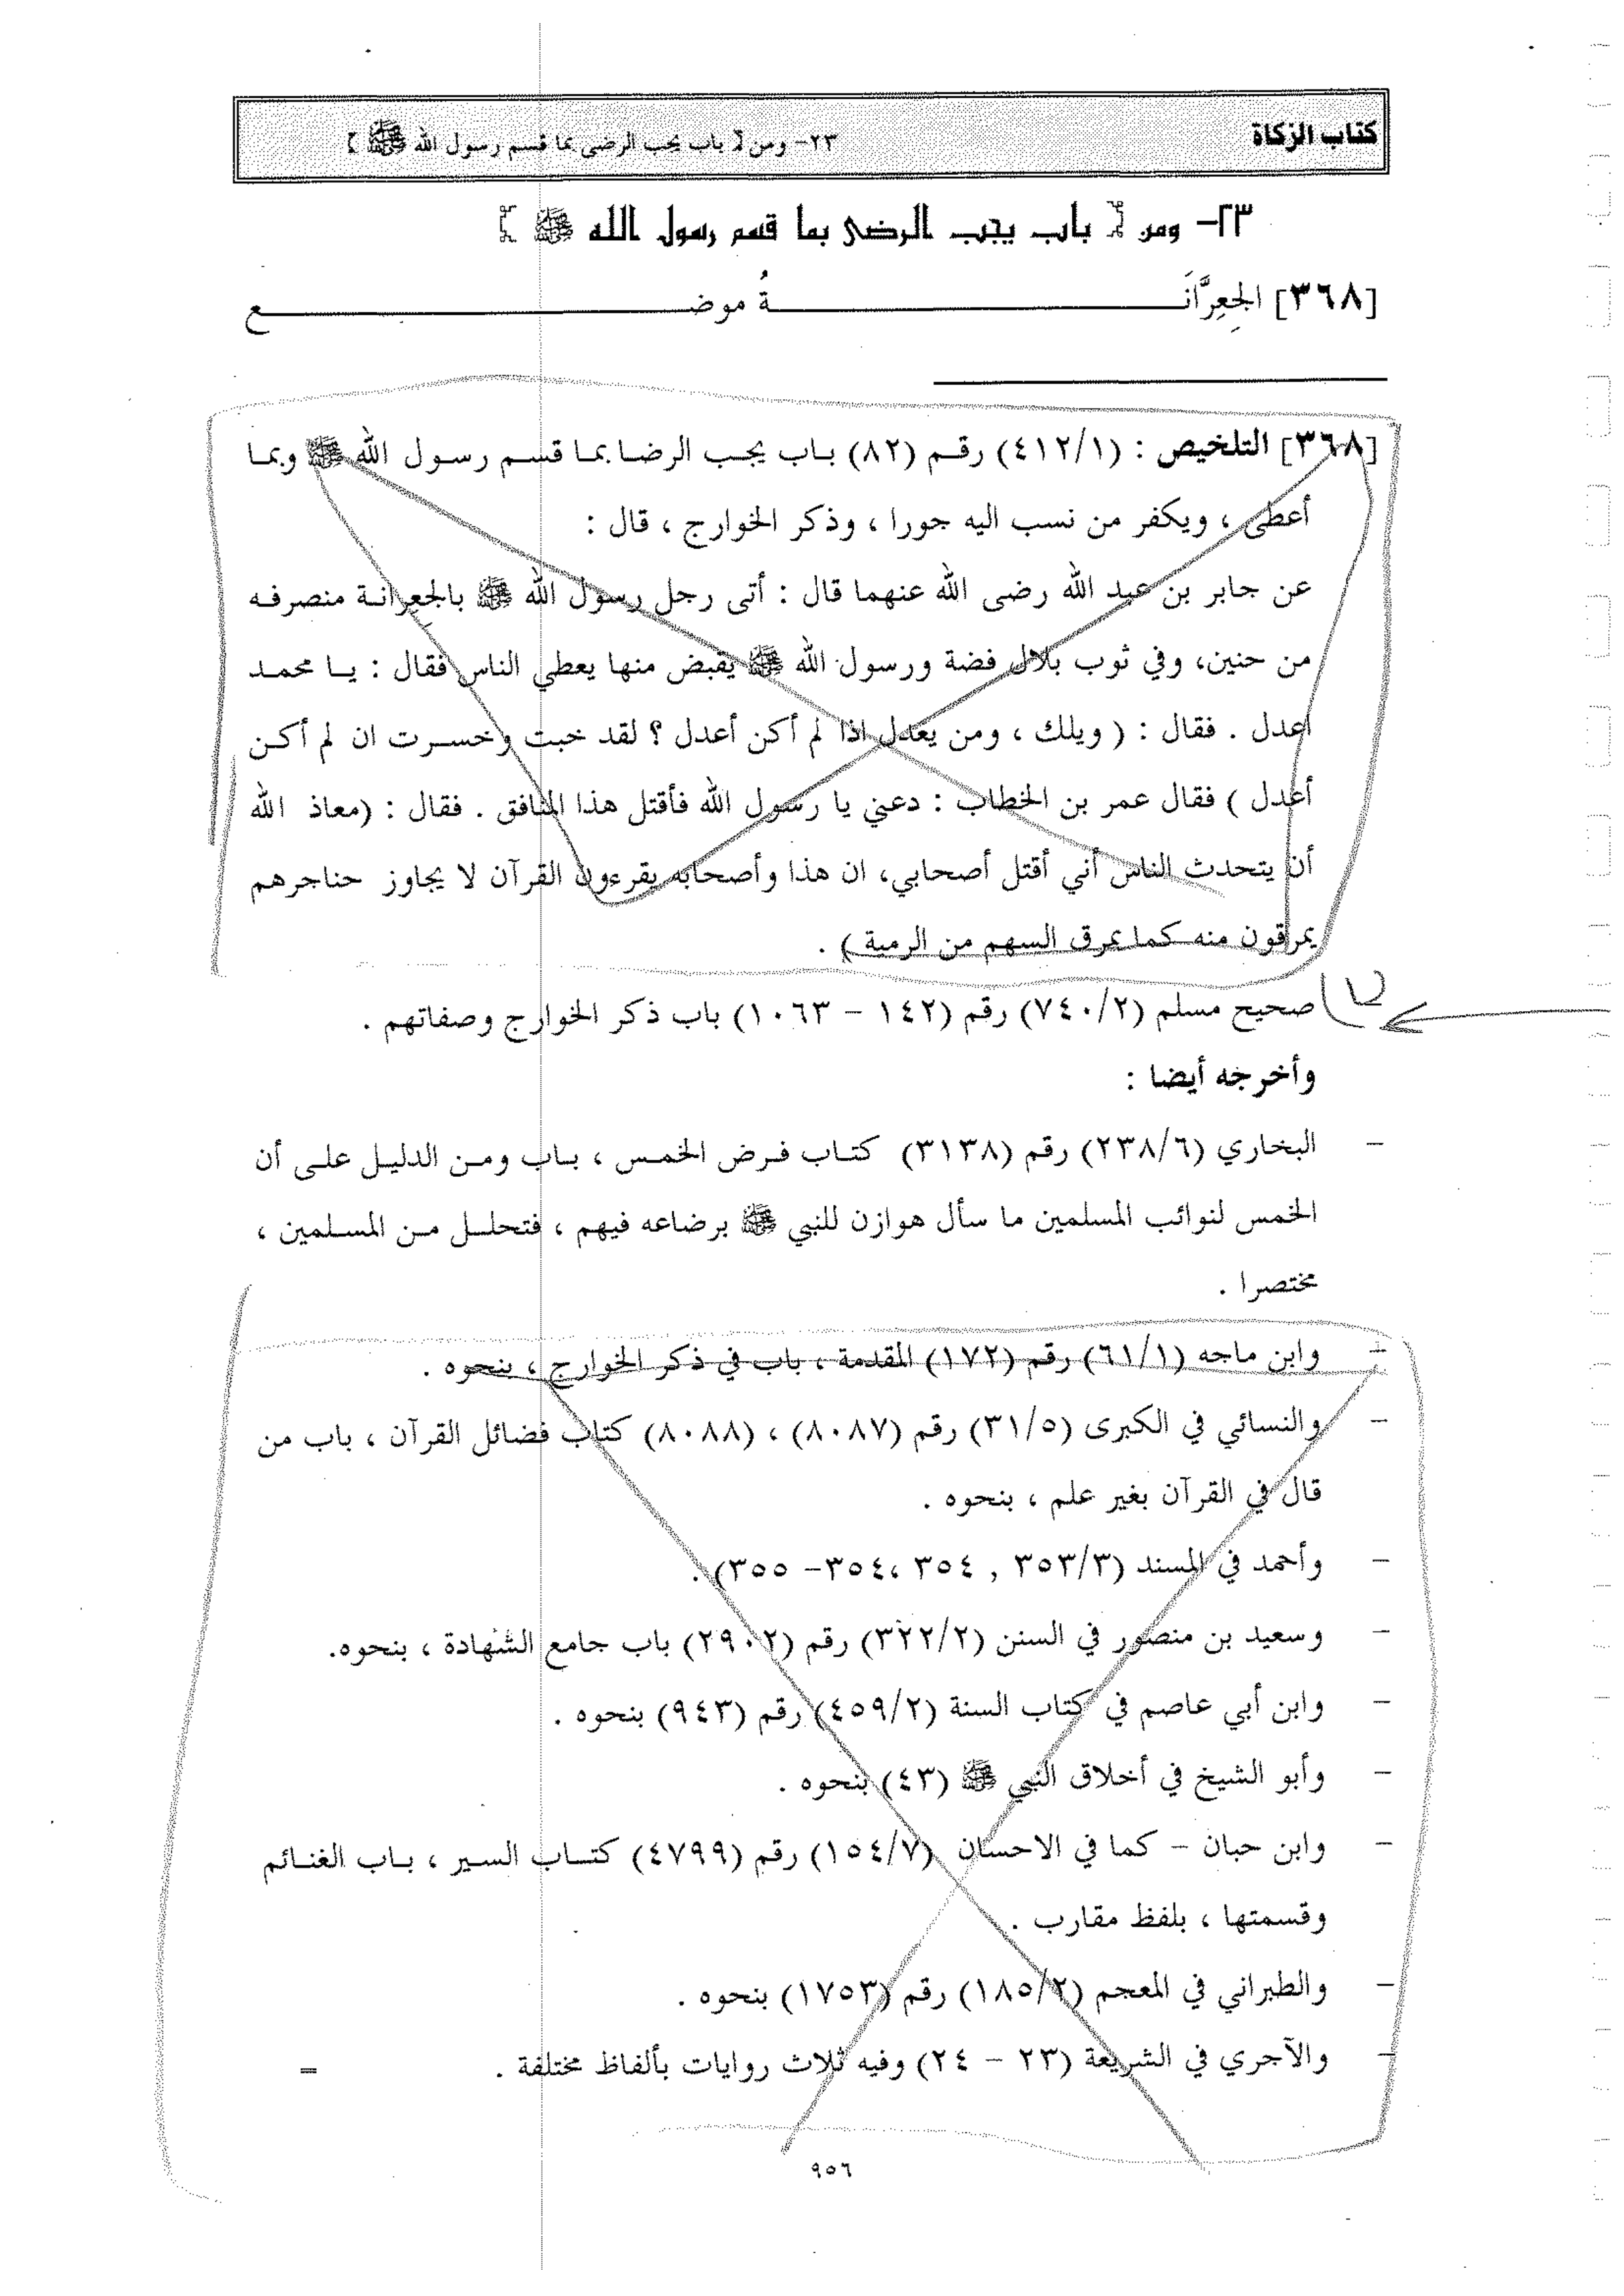 كتاب الزكاة ٢٣- ومن [ باب يجب الرضى بما قسم رسول الله ﷺ ]
٢٣- ومن [ باب يجب الرضى بما قسم رسول الله ﷺ ]
[٣٦٨] الجِعِرَّانَةُ موضع
[٣٦٨] التلخيص : (٤١٢/١) رقم (٨٢) باب يجب الرضا بما قسم رسول الله ﷺ وبما
أعطى ، ويكفر من نسب اليه جورا ، وذكر الخوارج ، قال :
عن جابر بن عبد الله رضى الله عنهما قال : أتى رجل رسول الله ﷺ بالجِعِرانة منصرفه
من حنين، وفي ثوب بلال فضة ورسول الله ﷺ يقبض منها يعطي الناس فقال : يا محمد
اعدل . فقال : ( ويلك ، ومن يعدل اذا لم أكن أعدل ؟ لقد خبت وخسرت ان لم أكن
أعدل ) فقال عمر بن الخطاب : دعني يا رسول الله فأقتل هذا المنافق . فقال : (معاذ الله
أن يتحدث الناس أني أقتل أصحابي، ان هذا وأصحابه يقرءون القرآن لا يجاوز حناجرهم
يمرقون منه كما يمرق السهم من الرمية ) .
صحيح مسلم (٧٤٠/٢) رقم (١٤٢ – ١٠٦٣) باب ذكر الخوارج وصفاتهم .
وأخرجه أيضا :
– البخاري (٢٣٨/٦) رقم (٣١٣٨) كتاب فرض الخمس ، باب ومن الدليل على أن
الخمس لنوائب المسلمين ما سأل هوازن للنبي ﷺ برضاعه فيهم ، فتحلل من المسلمين ،
مختصرا .
– وابن ماجه (٦١/١) رقم (١٧٢) المقدمة ، باب في ذكر الخوارج ، بنحوه .
– والنسائي في الكبرى (٣١/٥) رقم (٨٠٨٧) ، (٨٠٨٨) كتاب فضائل القرآن ، باب من
قال في القرآن بغير علم ، بنحوه .
– وأحمد في المسند (٣٥٣/٣ , ٣٥٤ ،٣٥٤– ٣٥٥) .
– وسعيد بن منصور في السنن (٣٢٢/٢) رقم (٢٩٠٢) باب جامع الشهادة ، بنحوه.
– وابن أبي عاصم في كتاب السنة (٤٥٩/٢) رقم (٩٤٣) بنحوه .
– وأبو الشيخ في أخلاق النبي ﷺ (٤٣) بنحوه .
– وابن حبان – كما في الاحسان (١٥٤/٧) رقم (٤٧٩٩) كتاب السير ، باب الغنائم
وقسمتها ، بلفظ مقارب .
– والطبراني في المعجم (١٨٥/٢) رقم (١٧٥٣) بنحوه .
– والآجري في الشريعة (٢٣ – ٢٤) وفيه ثلاث روايات بألفاظ مختلفة . =
٩٥٦